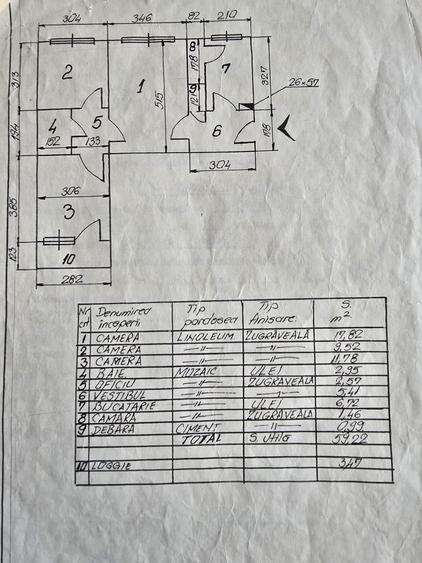 304 346 82 210
313
2
1
8
128
7
327
26×57
9
121
515
4
5
6
134
152 133
128
304
306
385
3
123
10
282
Nr crt Denumirea încaperii Tip pardosea Tip Finisare S. m²
1 CAMERA LINOLEUM ZUGRĂVEALĂ 17,82
2 CAMERA —〃— —〃— 9,52
3 CAMERA —〃— —〃— 11,78
4 BAIE MOZAIC ULEI 2,95
5 OFICIU —〃— ZUGRĂVEALA 2,57
6 VESTIBUL —〃— —〃— 5,41
7 BUCATARIE —〃— ULEI 6,72
8 CAMARA —〃— ZUGRĂVEALA 1,46
9 DEBARA CIMENT —〃— 0,99
TOTAL S. Utilă 59,22
10 LOGGIE 3,47